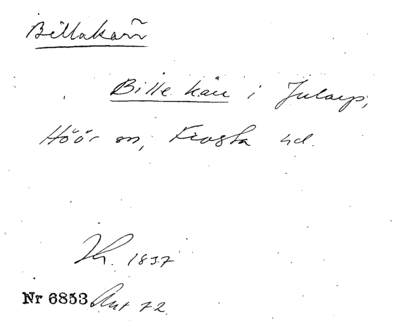 Billakärr
Bille kärr i Jularp,
Höör sn, Frosta hd.
Th. 1837
Nr 6853 Ant 72